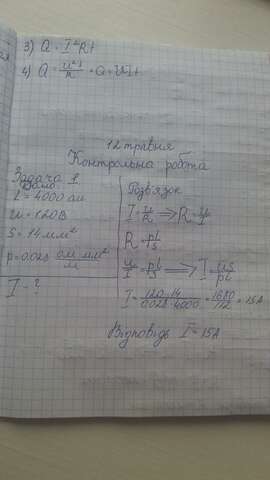 3) Q = I²Rt
4) Q = U²t/R = Q = UIt
12 травня
Контрольна робота
Задача 1.
Дано:
l = 4000 см
u = 120 В
S = 14 мм²
p = 0.028 ом мм²/м
I - ?
Розв'язок
I = U/R => R = U/I
R = pl/s
u/I = pl/s => I = us/pl
I = 120·14/0.028·4000 = 1680/112 = 15А
Відповідь I = 15А